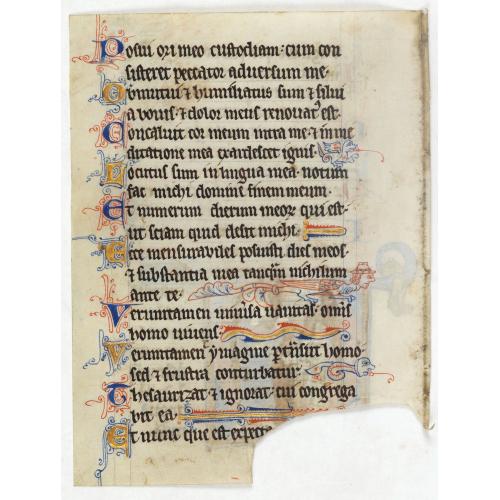 Posui ori meo custodiam: cum con
sisteret peccator adversum me.
Obmutui ⁊ humiliatus sum ⁊ silui
a bonis: ⁊ dolor meus renovatꝰ est.
Concaluit cor meum intra me: ⁊ in me
ditatione mea exardescet ignis.
Locutus sum in lingua mea: notum
fac michi domine finem meum.
Et numerum dierum meoꝝ qui est:
ut sciam quid desit michi.
Ecce mensurabiles posuisti dies meos:
⁊ substantia mea tanq̃m nichilum
ante te.
Verumtamen universa vanitas: omnis
homo vivens.
Verumtamen ymagine pertransit homo:
sed ⁊ frustra conturbatur.
Thesaurizat ⁊ ignorat: cui congrega
bit ea.
Et nunc que est expecta